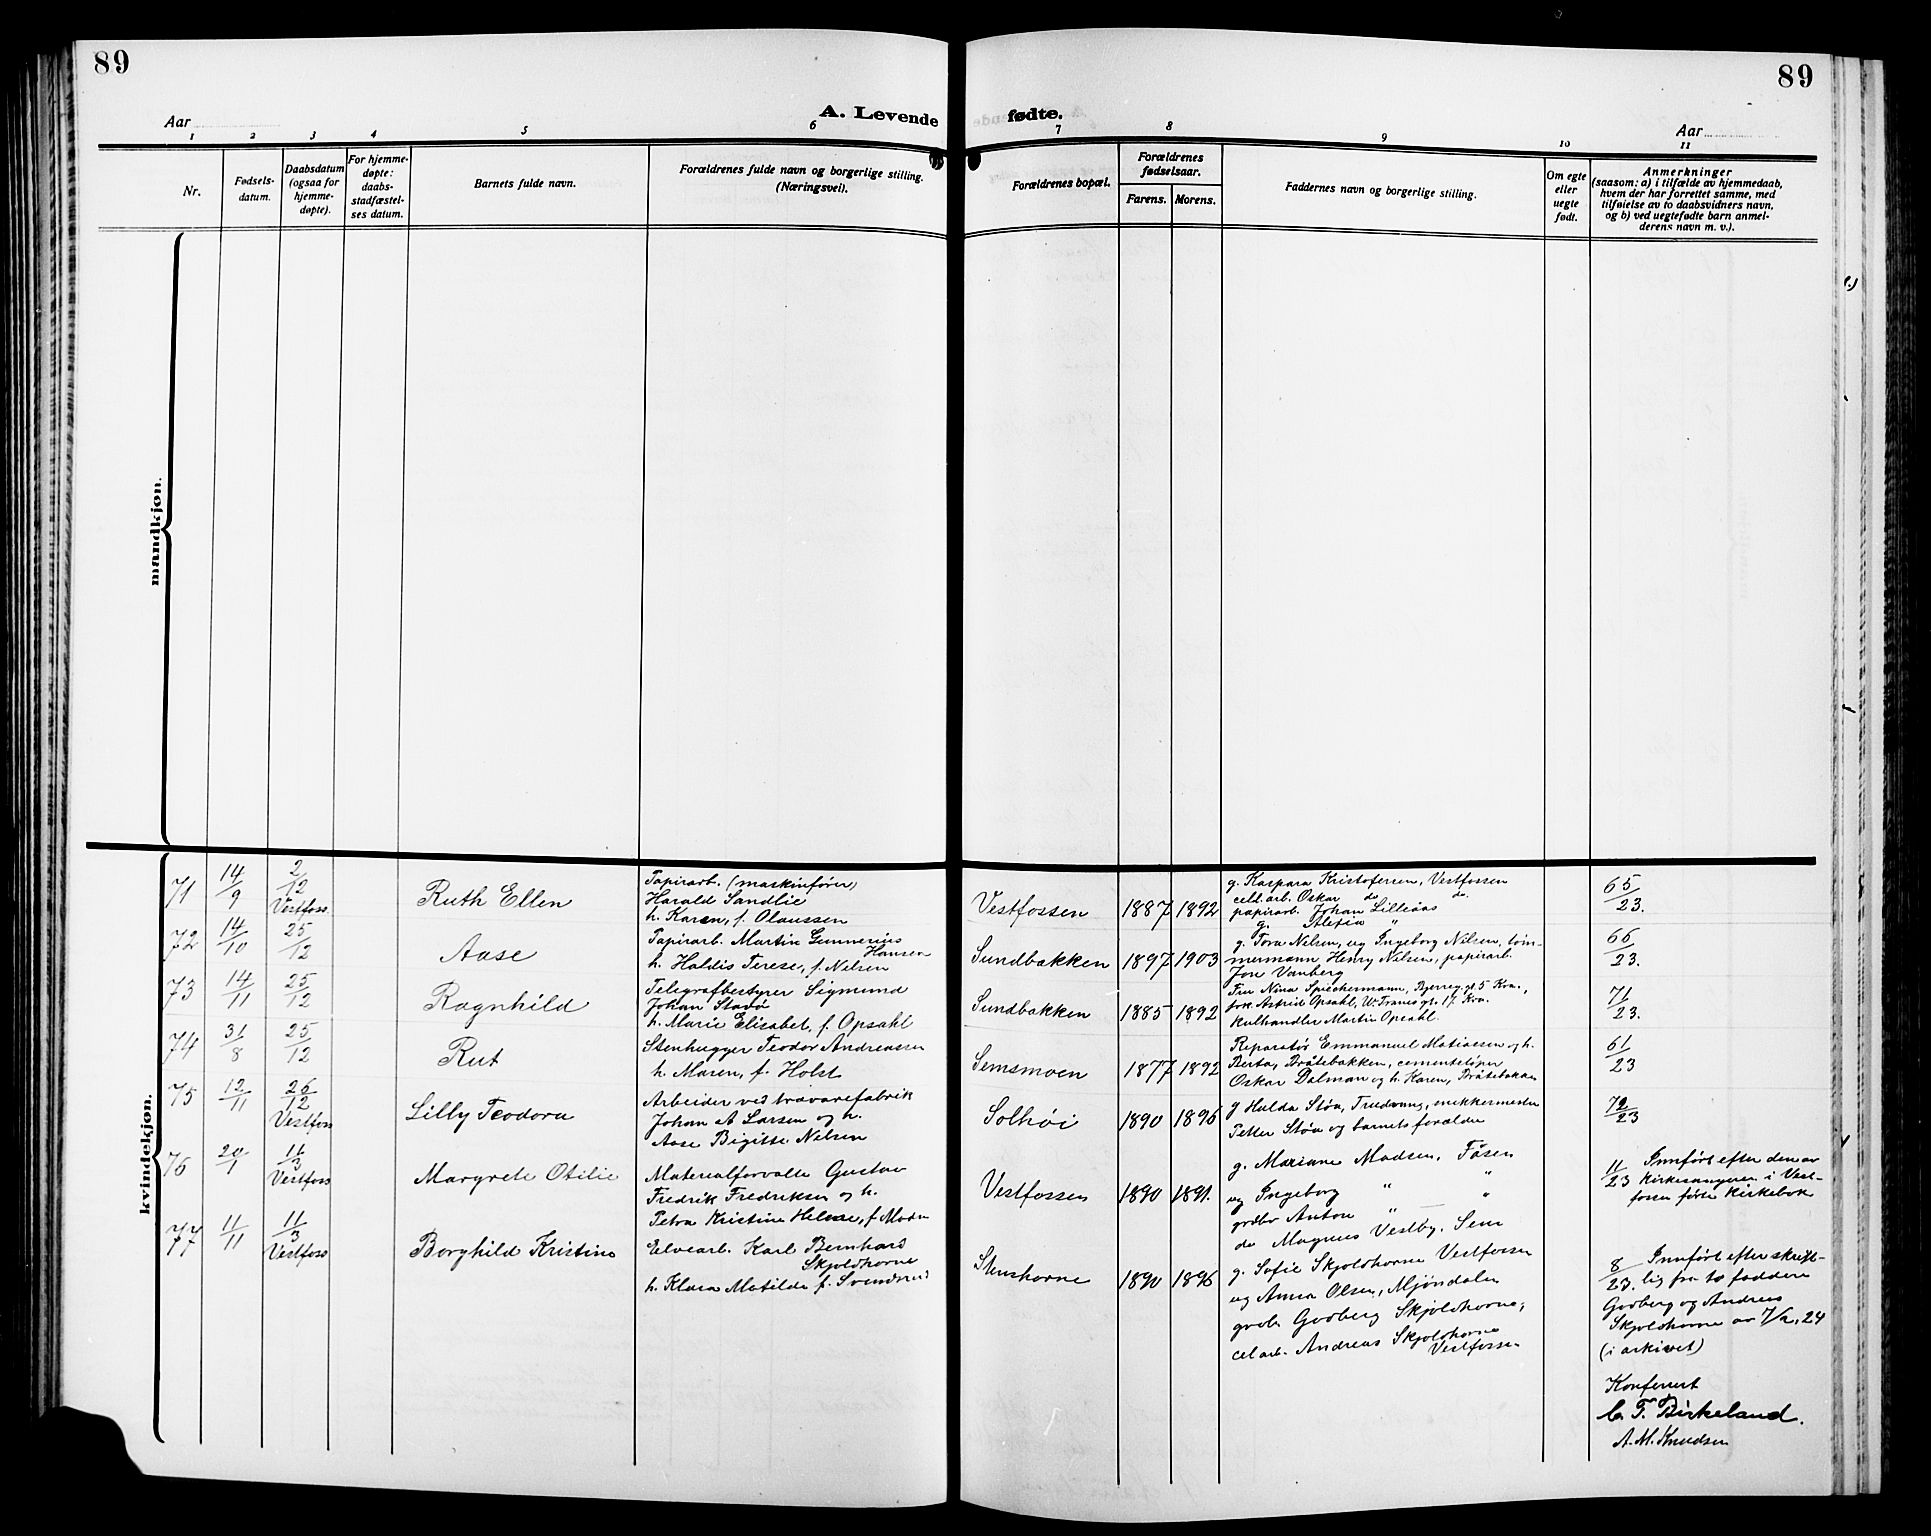 89
89
A. Levende fødte.
Aar
Aar
1 2 3 4 5 6 7 8 9 10 11
Nr.
Fødsels-
datum.
Daabsdatum
(ogsaa for
hjemme-
døpte).
For hjemme-
døpte:
daabs-
stadfæstel-
ses datum.
Barnets fulde navn.
Forældrenes fulde navn og borgerlige stilling.
(Næringsvei).
Forældrenes bopæl.
Forældrenes
fødselsaar.
Farens. Morens.
Faddernes navn og borgerlige stilling.
Om egte
eller
uegte
født.
Anmerkninger
(saasom: a) i tilfælde av hjemmedaab,
hvem der har forrettet samme, med
tilføielse av to daabsvidners navn,
og b) ved uegtefødte barn anmel-
derens navn m. v.).
mandkjøn.
kvindekjøn.
71
14/9
2/12
Vestfoss
Ruth Ellen
Papirarb. (maskinfører)
Harald Sandlie
h. Karen, f. Olaussen
Vestfossen
1887 1892
g. Kaspara Kristofersen, Vestfossen
cell. arb. Oskar do do.
papirarb. Johan Lilleaas
g. "
65/23.
72
14/10
25/12
Aase
Papirarb. Martin Gunnerius
Hansen
h. Haldis Terese, f. Nelsen
Sundbakken
1897 1903
g. Tora Nelsen, ug Ingeborg Nelsen, tøm-
mermann Henry Nelsen, papirarb.
Jon Vanberg
66/23.
73
14/11
25/12
Ragnhild
Telegrafbestyrer Sigmund
Johan Stavø
h. Marie Elisabet, f. Opsahl
Sundbakken
1885 1892
Fru Nina Spickermann, Bjerreg. gt. 5 Kra.,
frk. Astrid Opsahl, W. Tranes gt. 17. Kra.
Kulhandler Martin Opsahl.
71/23.
74
31/8
25/12
Rut
Stenhugger Teodor Andreassen
h. Maren, f. Holst
Semsmoen
1877 1892
Reparatør Emmanuel Matiassen og h.
Berta, Bråtebakken, cementstøper
Oskar Dalman og h. Karen, Bråtebakken
61/23
75
12/11
26/12
Vestfoss
Lilly Teodora
Arbeider ved trævarefabrik
Johan A Larsen og h.
Aase Birgitte Nelsen
Solhøi
1890 1896
g Hulda Støa, Trudvang, snekkermester
Petter Støa og barnets forældre
72/23
76
20/1
11/3
Vestfoss
Margrete Otilie
Materialforvalte Gustav
Fredrik Fredriksen og h.
Petra Kristine Helene, f. Moen
Vestfossen
1890 1891.
g. Mariane Madsen, Fåsen
ug Ingeborg " "
grdbr Anton " "
do Magnus Vestby, Sem
11/23
Innført efter den av
kirkesangeren i Vest-
fossen førte kirkebok
77
11/11
11/3
Vestfoss
Borghild Kristine
Elvearb. Karl Bernhard
Skjoldhorne
h. Klara Matilde f. Svendsrud
Stenshorne
1890 1896
g. Sofie Skjoldhorne Vestfossen
ug Anna Olsen, Mjøndalen
grdbr. Godberg Skjoldhorne,
cel arb. Andreas Skjoldhorne
Vestfossen
8/23.
Innført efter skrift-
lig fra to faddere
Godberg og Andreas
Skjoldhorne av 7/2, 24
(i arkivet)
Konferert
C. T. Birkeland.
A. M. Knudsen